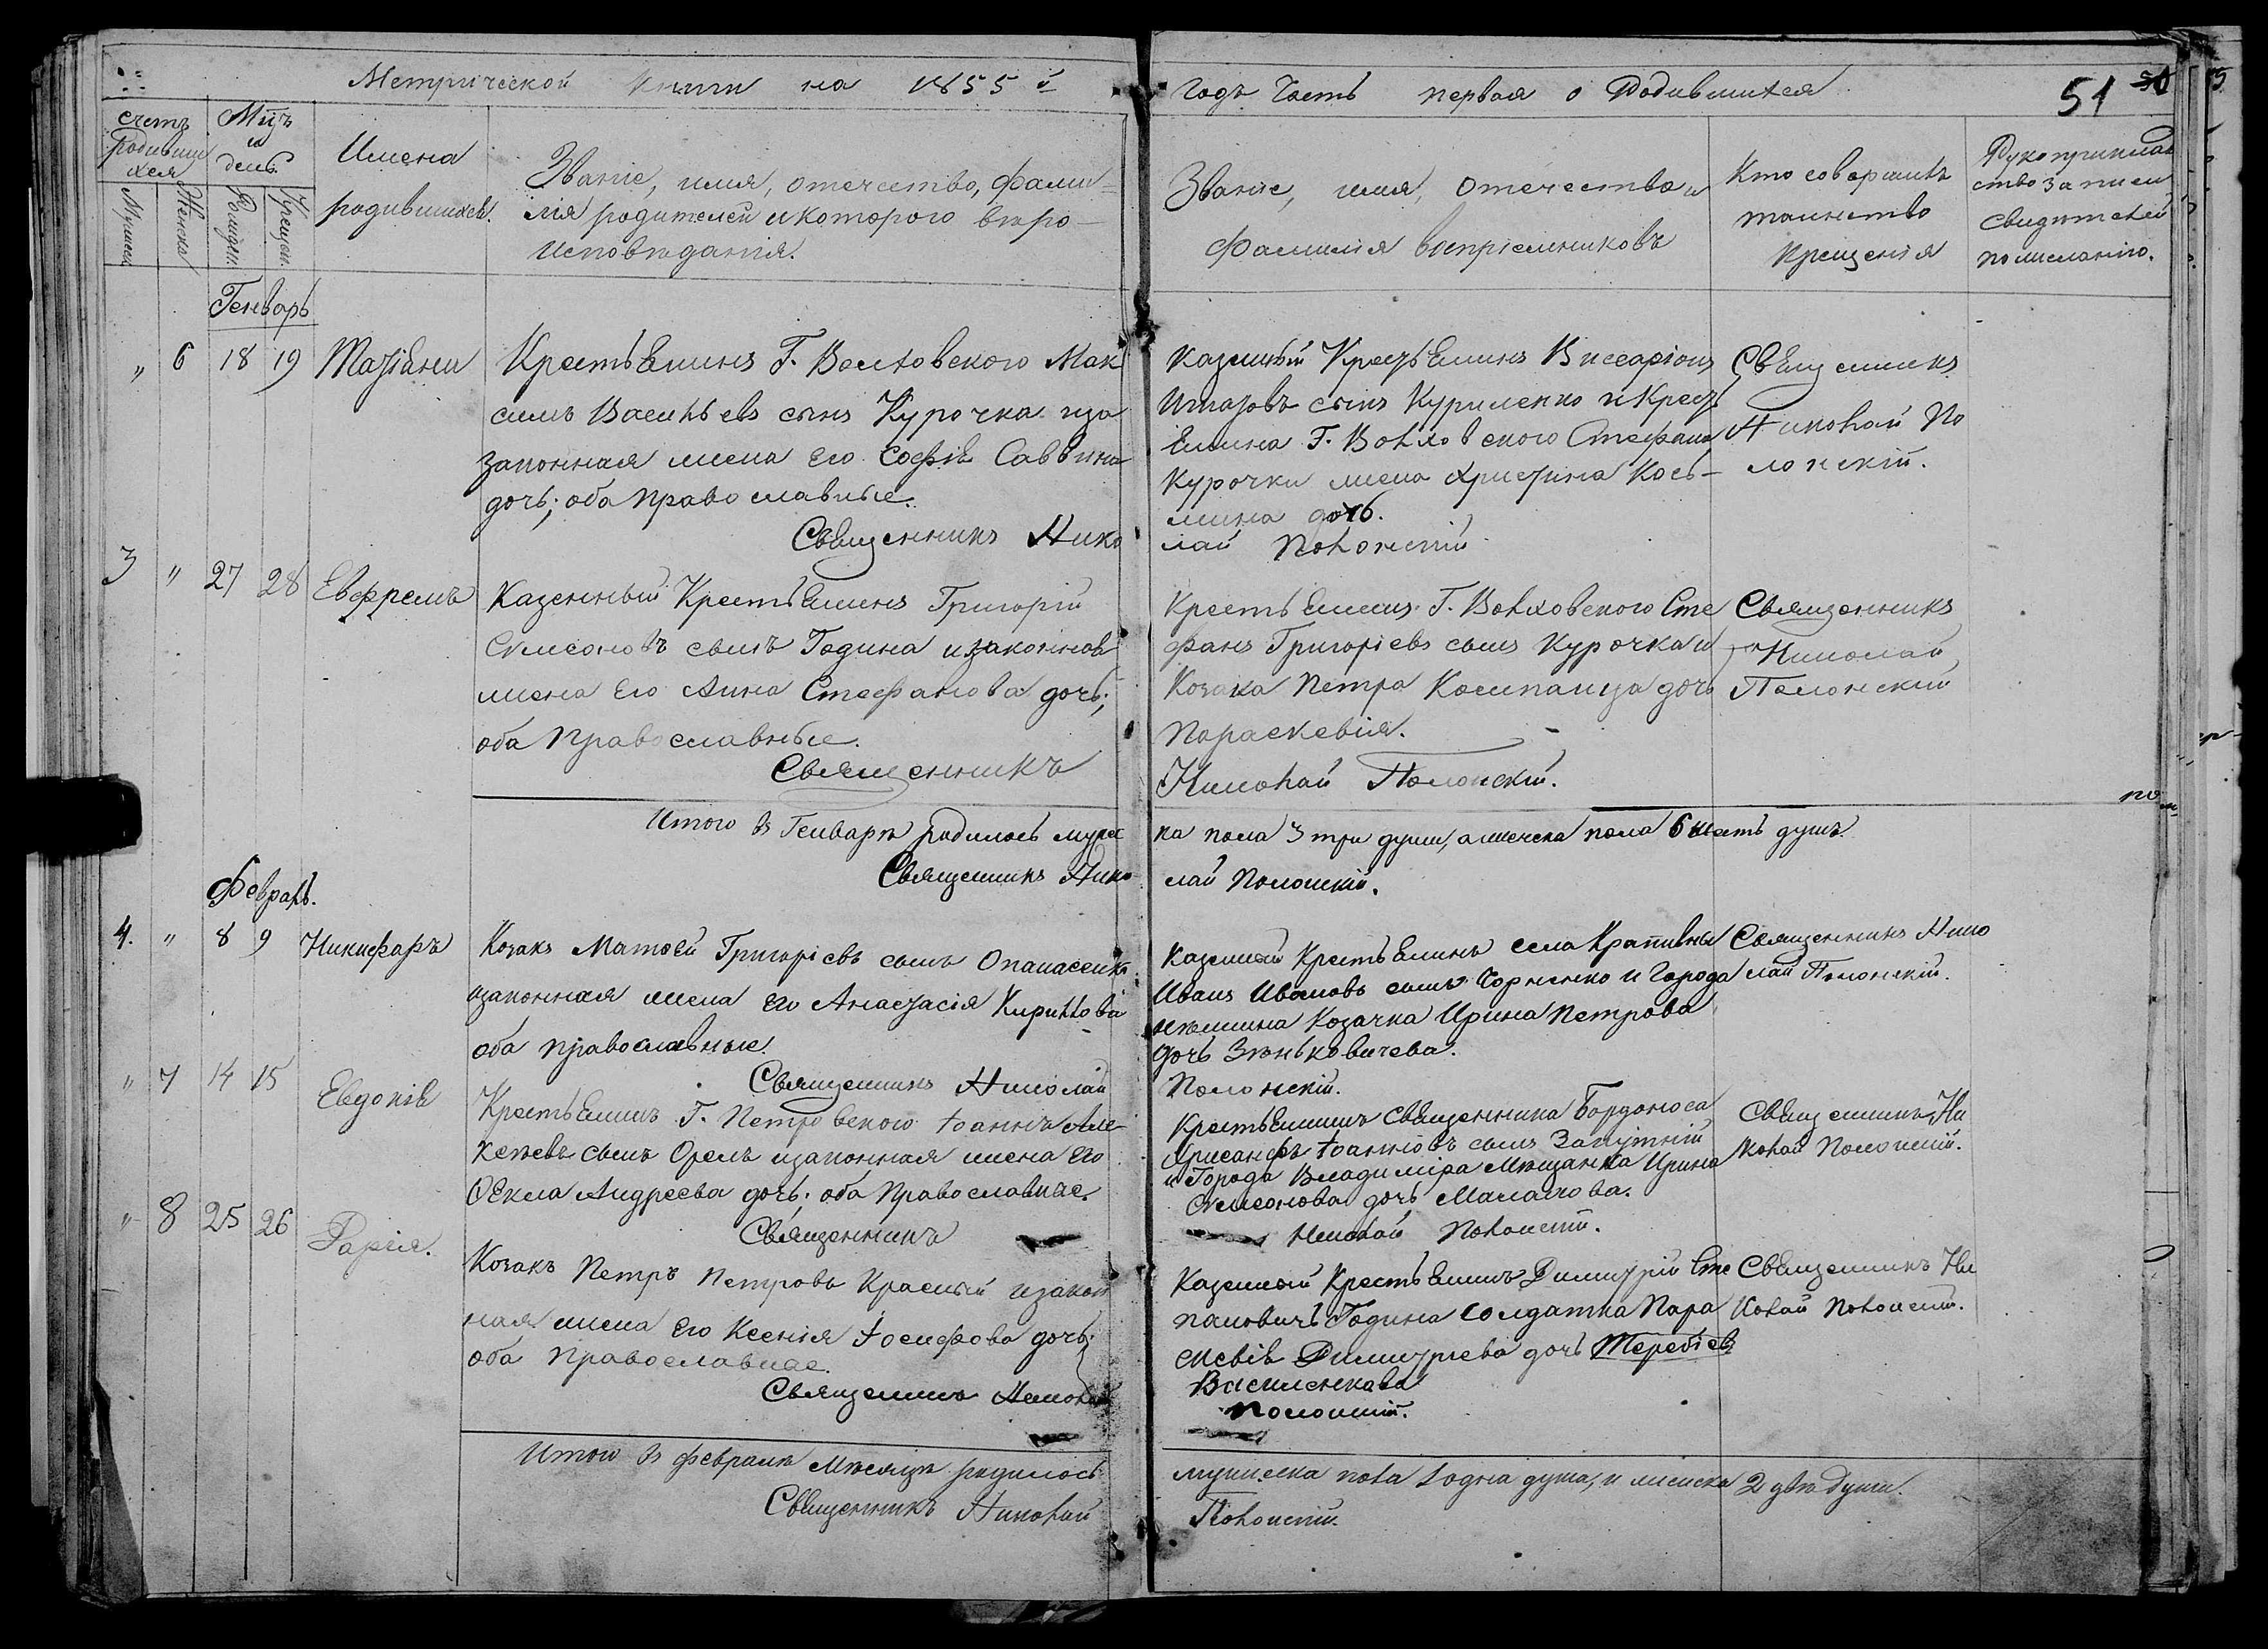 Метрической книги на 1855 й
годъ Часть первая о Родившихся
51
счетъ родивши хся
Мцъ и день.
Имена родившихся.
Званіе, имя, отечество, фами=
лія родителей и которого вѣро-
исповѣданія.
Званіе, имя, отечество и
фамилія воспріемниковъ
Кто совершилъ
таинство
крещенія
Рукоприклад
ство записи
свидѣтелей
по желанію.
Мужеск
Женска
Рожден.
Крещен.
Генварь
" 6 18 19 Тазіани
Крестьянинъ Г. Волховского Мак
симъ Васильевъ сынъ Курочка иза
законная жена его Софія Саввина
дочь; оба православные.
Священникъ Нико
Казенный Крестьянинъ Виссаріонъ
сынъ Куриленко и Крест
янина Г. Волховского Стефана
Курочки жена Христина Кось-
мина дочь.
лай Полонскій
Священникъ
Николай По
лонскій.
3 " 27 28 Евфремъ
Казенный Крестьянинъ Григорій
Симеоновъ сынъ Година и законная
жена его Анна Стефанова дочь;
оба православные.
Священникъ
Крестьянинъ Г. Волховского Сте
фанъ Григоріевъ сынъ Курочка и
Козака Петра Компанца дочь
Параскевія.
Николай Полонскій.
Священникъ
Николай
Полонскій
Итого въ Генварѣ родилось мужес
Священникъ Нико
ка пола 3 три души, а женска пола 6 шесть душъ.
лай Полонскій.
Февраль.
4. " 8 9 Никифаръ
Козакъ Матѳей Григоріевъ сынъ Опанасенко
изаконная жена его Анастасія Кириллова
оба православные.
Священникъ Николай
Казенный Крестьянинъ села Крапивны
Иванъ Ивановъ сынъ Чорненко и Города
нѣжина Козачка Ирина Петрова
дочь Зѣньковичева.
Полонскій.
Священникъ Нико
лай Полонскій.
" 7 14 15 Евдокія
Крестьянинъ Г. Петровского Іоаннъ Але
ксѣевъ сынъ Орелъ изаконная жена его
Ѳекла Андреева дочь; оба Православные.
Священникъ
Крестьянинъ Священника Бордоноса
Хрисанфъ Іоанновъ сынъ Запутній
и Города Владиміра Мѣщанка Ирина
Симеонова дочь Малахова.
Николай Полонскій.
Священникъ Ни
колай Полонскій.
" 8 25 26
Козакъ Петръ Петровъ Красный изакон
ная жена его Ксенія Іосифова дочь;
оба Православные.
Священникъ Николай
Казенный Крестьянинъ Димитрій Сте
пановичъ Година Солдатка Пара
скевія Димитріева дочь
Василенкава
Полонскій.
Священникъ Ни
колай Полонскій.
Итого въ февралѣ Мѣсяцѣ родилось
Священникъ Николай
мужеска пола 1 одна душа, и женска 2 двѣ души.
Полонскій.